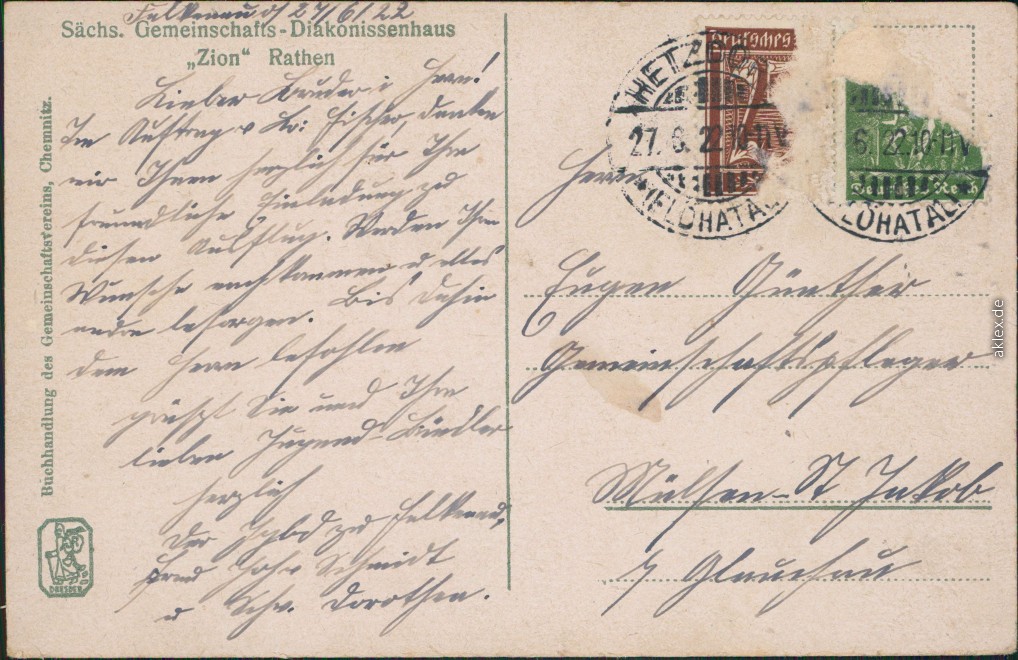 Falkenau d/ 27/6/22
Sächs. Gemeinschafts-Diakonissenhaus
„Zion“ Rathen
Lieber Bruder i. Herrn!
Im Auftrag v. Br: Fischer, danken
wir Ihnen herzlich für Ihre
freundliche Einladung zu
diesen Ausflug. Werden Ihren
Wunsche nachkommen u. alles
andre besorgen. Bis dahin
dem Herrn befohlen
grüßt Sie und Ihre
lieben Jugend-Bündler
herzlich
Der Jgbd zu Falkenau,
Schmidt
u. Schw. Dorothea.
Buchhandlung des Gemeinschaftsvereins, Chemnitz.
DRESDEN
Deutsches
HETZDO
27. 6. 22.10-11V
(FLÖHATAL
6. 22.10-11V
LÖHATAL
Reich
Herrn
Eugen Günther
Gemeinschaftspfleger
Mülsen-St Jakob
b/ Glauchau
aklex.de